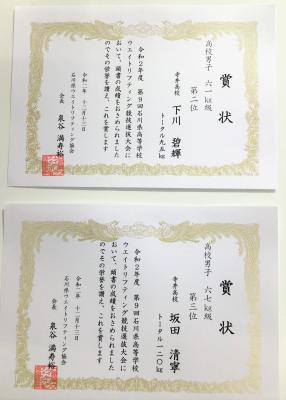 賞状
高校男子 六一㎏級
第二位
寺井高校
下川 碧輝
トータル九五㎏
令和2年度 第9回石川県高等学校
ウエイトリフティング競技選抜大会に
おいて、頭書の成績をおさめられました
のでその栄誉を讃え、これを賞します
令和二年 十二月十三日
石川県ウエイトリフティング協会
会長 泉谷 満寿裕
賞状
高校男子 六七㎏級
第三位
寺井高校
坂田 清寧
トータル一二〇㎏
令和2年度 第9回石川県高等学校
ウエイトリフティング競技選抜大会に
おいて、頭書の成績をおさめられました
のでその栄誉を讃え、これを賞します
令和二年 十二月十三日
石川県ウエイトリフティング協会
会長 泉谷 満寿裕